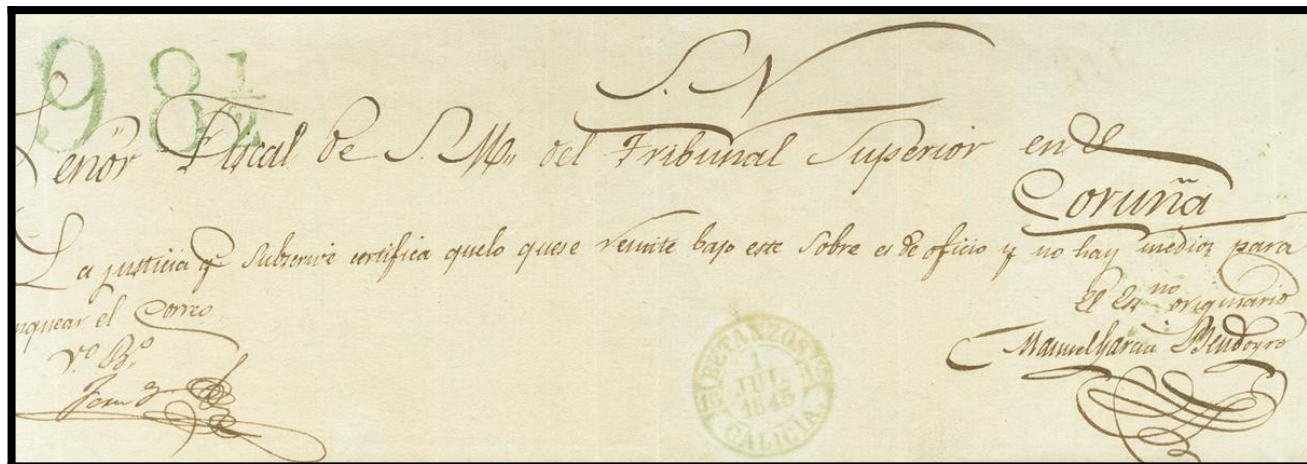 9 8 1/2
S. N
Señor Fiscal de S. M. del Tribunal Superior en
Coruña
La justicia q.e Subscrive certifica quelo quese remite bajo este Sobre es de oficio y no hay medios para
nquear el Correo
El Es.no originario
V.o B.o
Manuel Garcia Bendoyro
BETANZOS
1
JUL.
1845
GALICIA